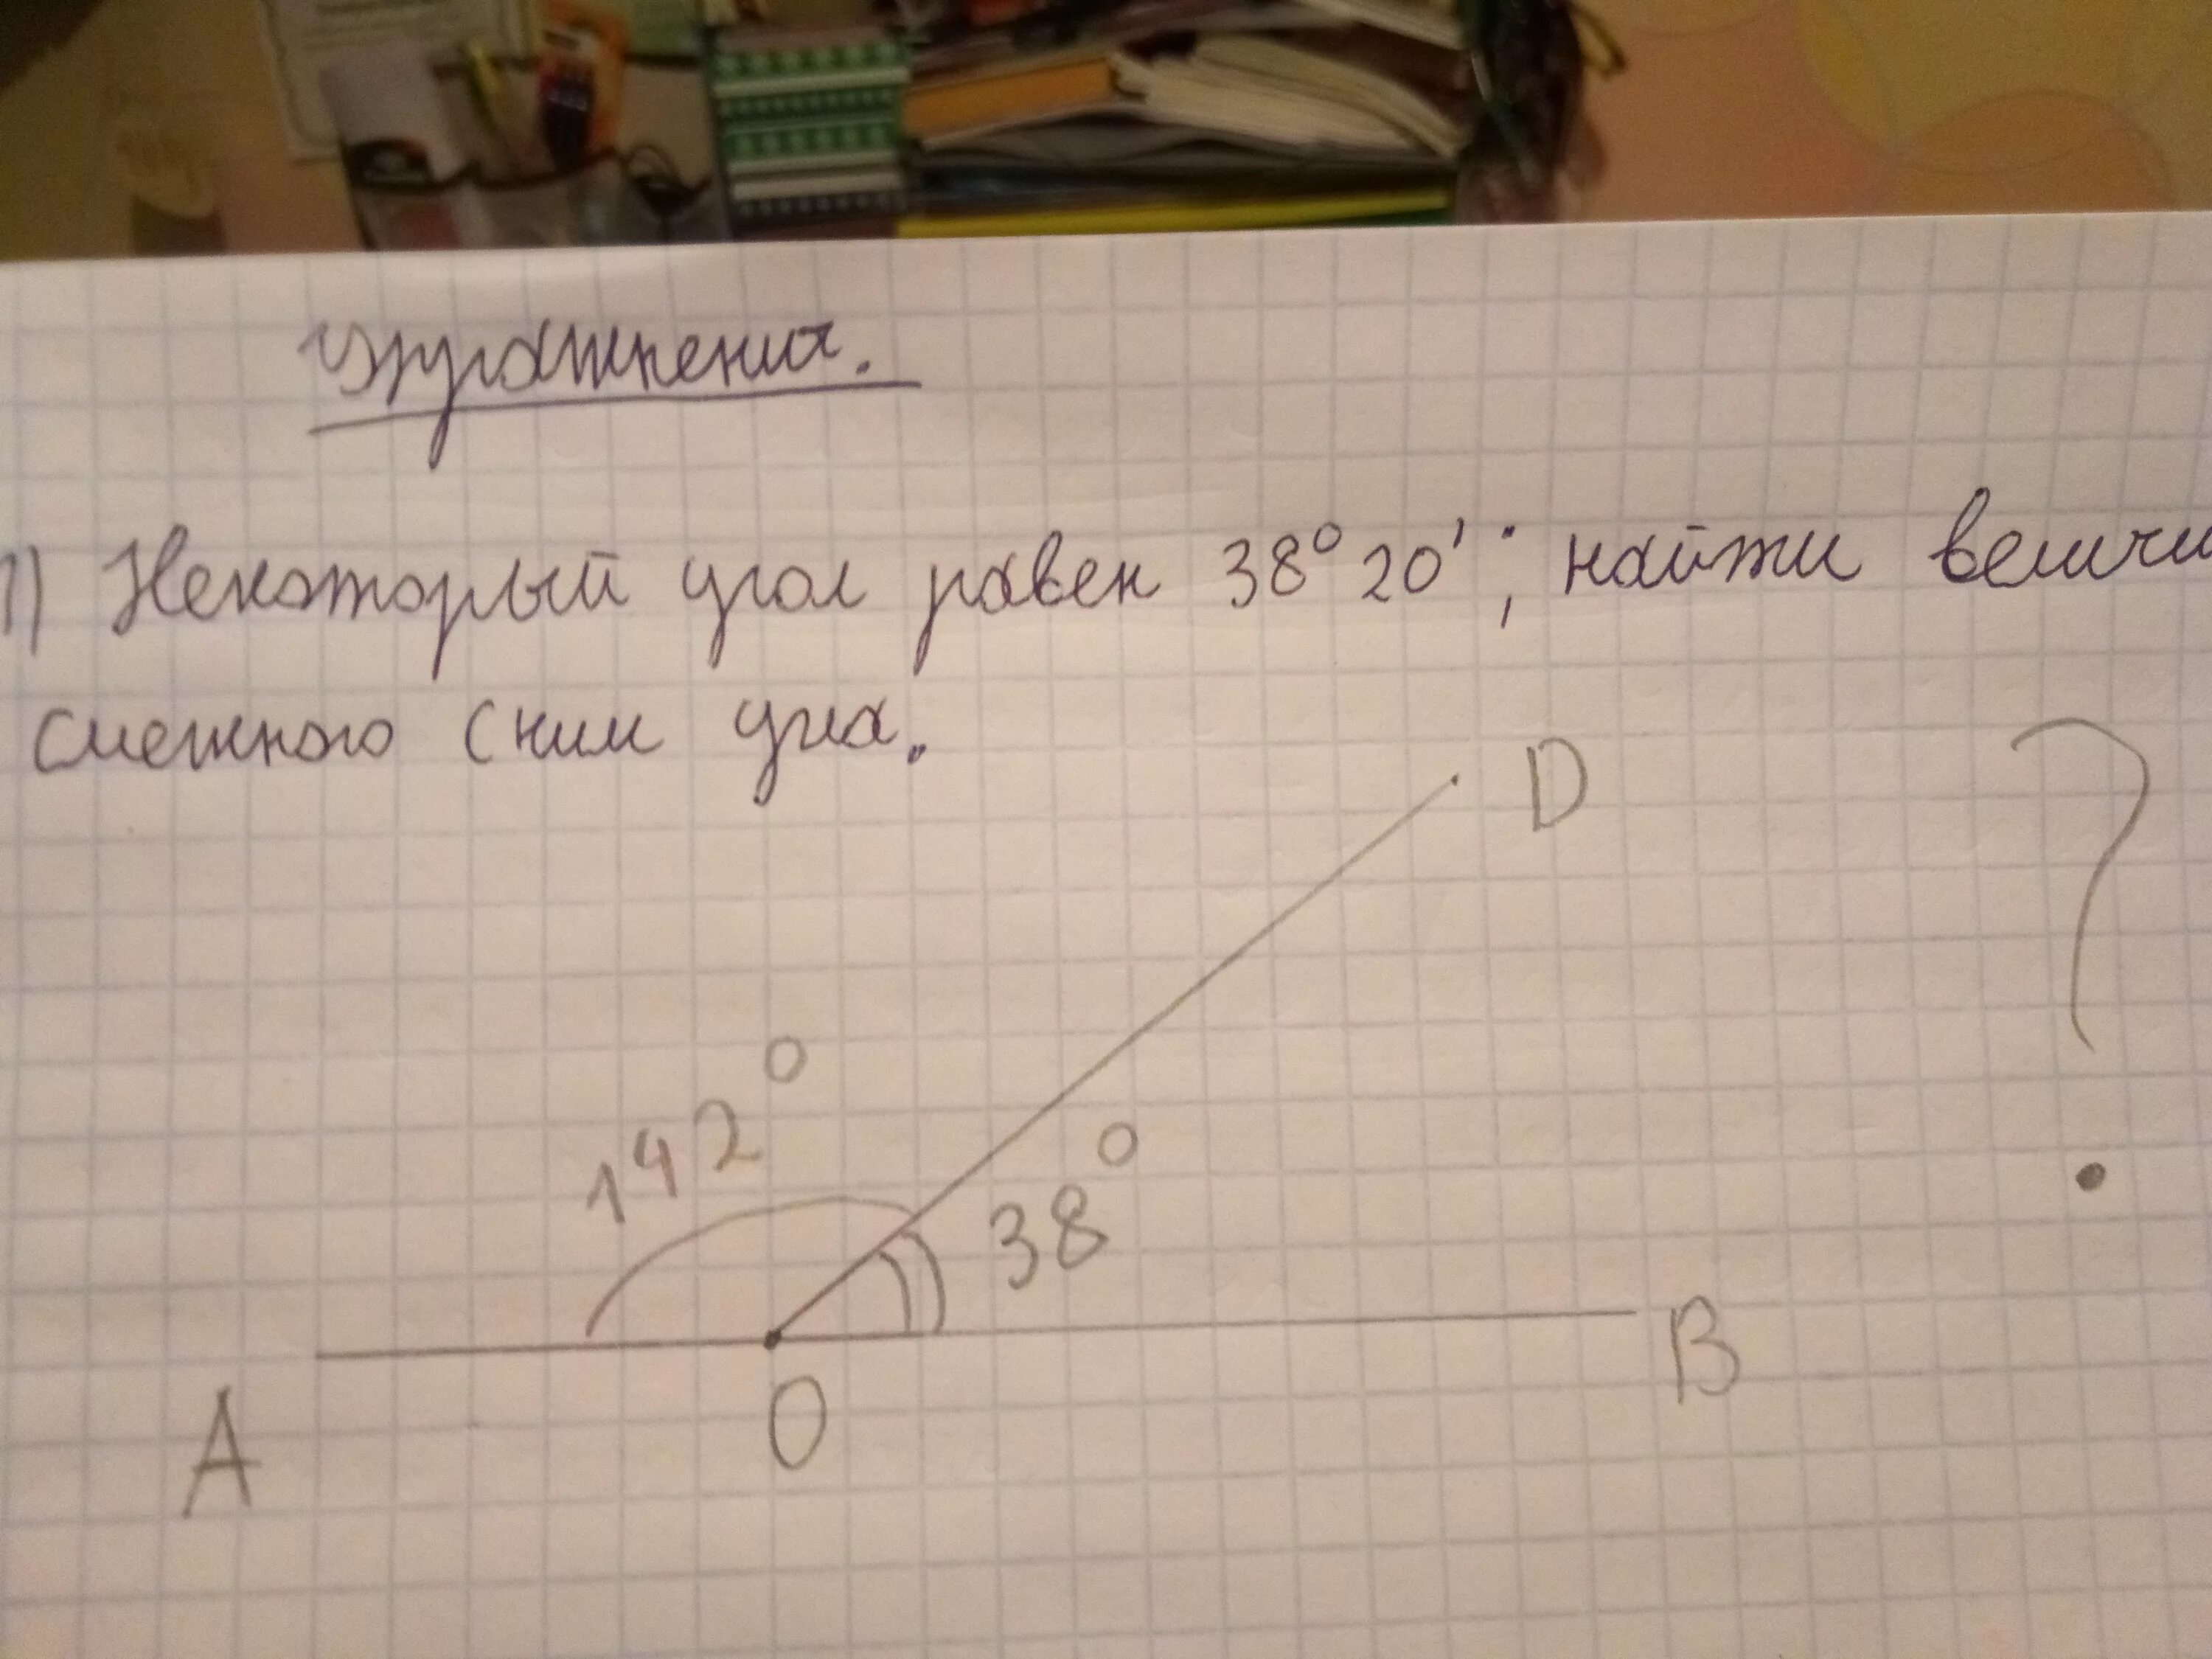 Упражнения.
1) Некоторый угол равен 38° 20'; найти величи
смежного с ним угла.
D
?
142°
38°
A
O
B